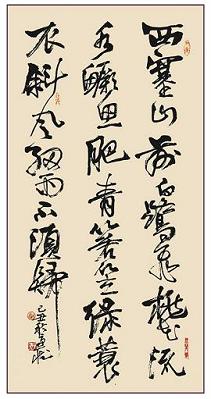 西塞山前白鷺飛桃花流
水鱖魚肥青箬笠綠蓑
衣斜风細雨不須歸
己丑